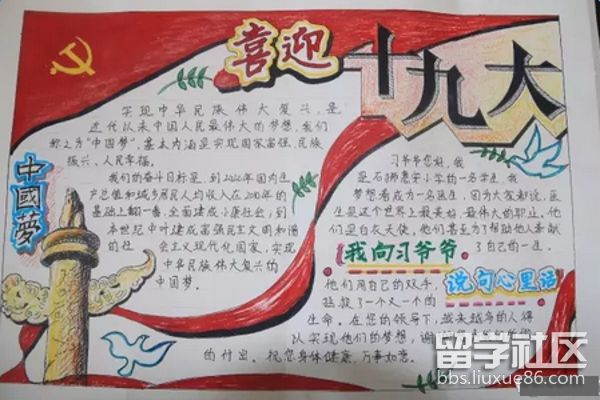 喜迎
十九大
实现中华民族伟大复兴,是
近代以来中国人民最伟大的梦想,我们
称之为"中国梦",基本内涵是实现国家富强,民族
振兴,人民幸福。
我们的奋斗目标是,到2020年国内生
产总值和城乡居民人均收入在2010年的
基础上翻一番,全面建成小康社会,到
本世纪中叶建成富强民主文明和谐
的社会主义现代化国家,实现
中华民族伟大复兴的
中国梦。
中國夢
习爷爷您好,我
是石狮惠安小学的一名学生,我
梦想着成为一名医生,因为大家都说,医
生是这个世界上最美好、最伟大的职业,他
们是白衣天使,他们甚至为了帮助他人奉献
了自己的一生。
我向习爷爷
说句心里话
他们用自己的双手,
拯救了一个又一个的
生命。在您的领导下,越来越多的人得
以实现他们的梦想,谢
的付出。祝您身体健康,万事如意。
留学社区
bbs.liuxue86.com